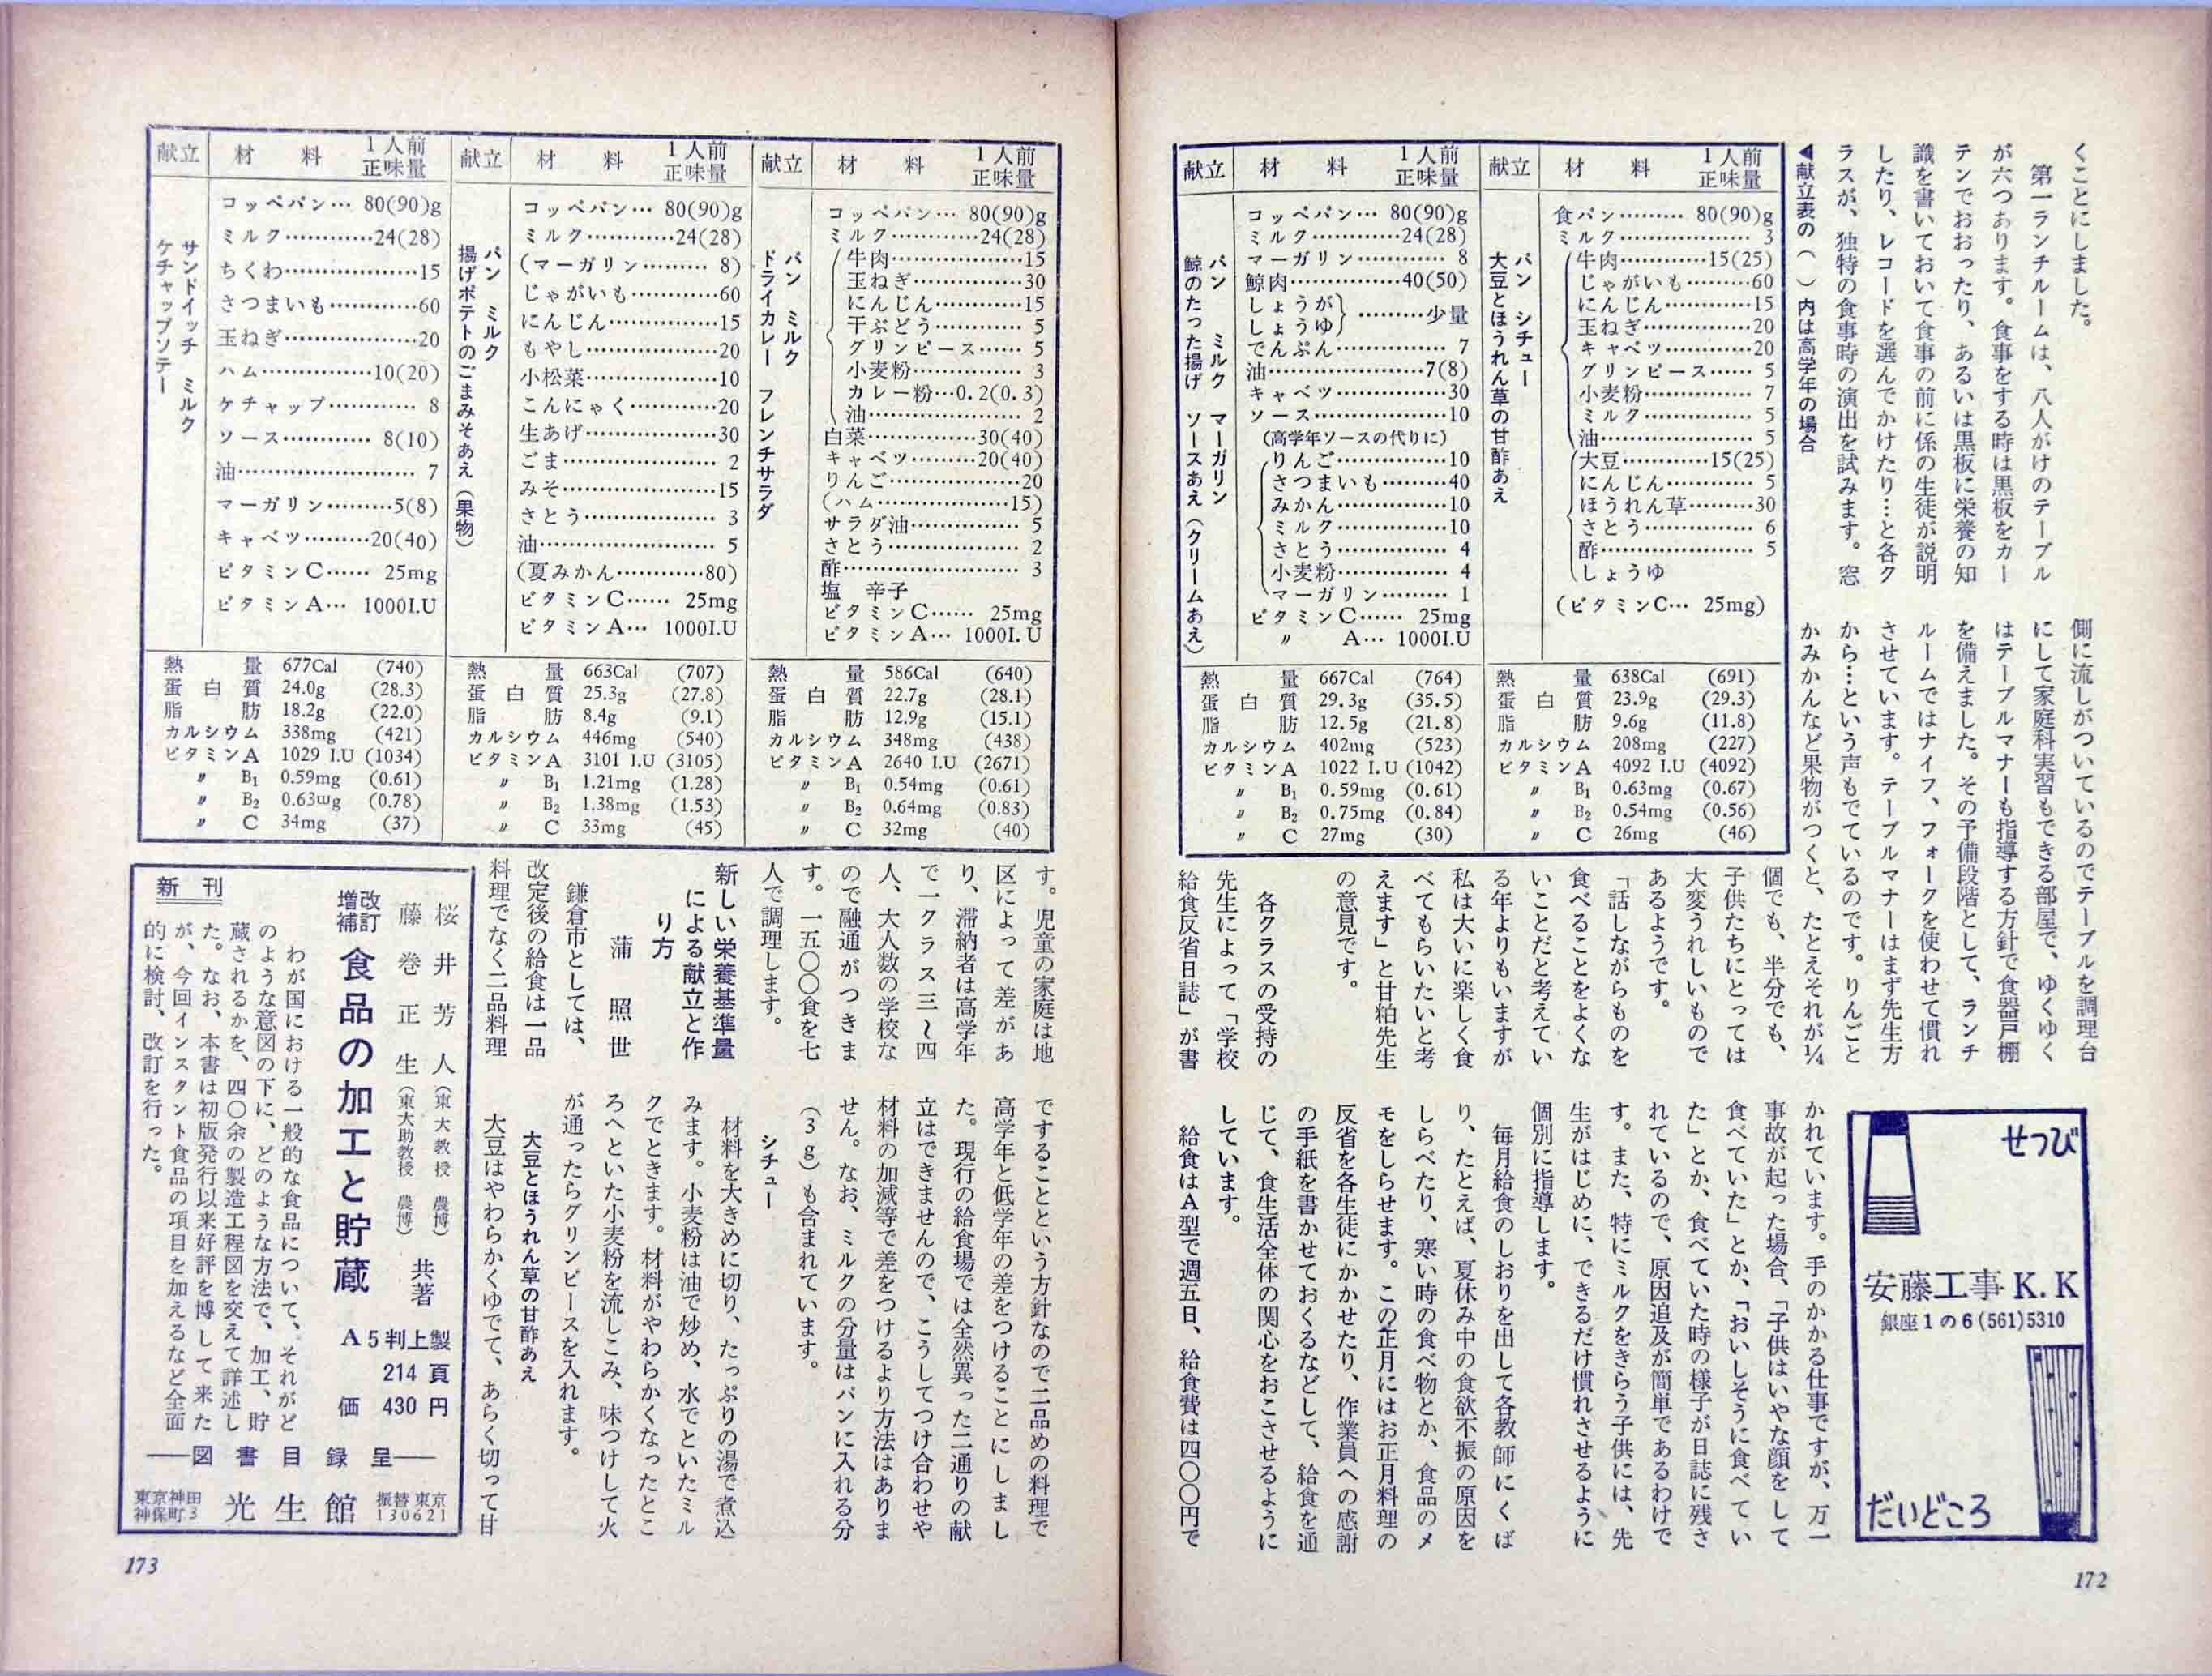 くことにしました。
第一ランチルームは、八人がけのテーブル
が六つあります。食事をする時は黒板をカー
テンでおおったり、あるいは黒板に栄養の知
識を書いておいて食事の前に係の生徒が説明
したり、レコードを選んでかけたり…と各ク
ラスが、独特の食事時の演出を試みます。窓
◀献立表の( )内は高学年の場合
側に流しがついているのでテーブルを調理台
にして家庭科実習もできる部屋で、ゆくゆく
はテーブルマナーも指導する方針で食器戸棚
を備えました。その予備段階として、ランチ
ルームではナイフ、フォークを使わせて慣れ
させています。テーブルマナーはまず先生方
から…という声もでているのです。りんごと
かみかんなど果物がつくと、たとえそれが¼
個でも、半分でも、
子供たちにとっては
大変うれしいもので
あるようです。
「話しながらものを
食べることをよくな
いことだと考えてい
る年よりもいますが
私は大いに楽しく食
べてもらいたいと考
えます」と甘粕先生
の意見です。
各クラスの受持の
先生によって「学校
給食反省日誌」が書
かれています。手のかかる仕事ですが、万一
事故が起った場合、「子供はいやな顔をして
食べていた」とか、「おいしそうに食べてい
た」とか、食べていた時の様子が日誌に残さ
れているので、原因追及が簡単であるわけで
す。また、特にミルクをきらう子供には、先
生がはじめに、できるだけ慣れさせるように
個別に指導します。
毎月給食のしおりを出して各教師にくば
り、たとえば、夏休み中の食欲不振の原因を
しらべたり、寒い時の食べ物とか、食品のメ
モをしらせます。この正月にはお正月料理の
反省を各生徒にかかせたり、作業員への感謝
の手紙を書かせておくるなどして、給食を通
じて、食生活全体の関心をおこさせるように
しています。
給食はA型で週五日、給食費は四〇〇円で
献立 材料 1人前正味量
パン シチュー
大豆とほうれん草の甘酢あえ
食パン……… 80(90)g
ミルク……………… 3
牛肉…………15(25)
じゃがいも………60
にんじん…………15
玉ねぎ……………20
キャベツ…………20
グリンピース…… 5
小麦粉…………… 7
ミルク…………… 5
油………………… 5
大豆…………15(25)
にんじん………… 5
ほうれん草………30
さとう…………… 6
酢………………… 5
しょうゆ
(ビタミンC… 25mg)
熱量 638Cal (691)
蛋白質 23.9g (29.3)
脂肪 9.6g (11.8)
カルシウム 208mg (227)
ビタミンA 4092 I.U (4092)
〃 B₁ 0.63mg (0.67)
〃 B₂ 0.54mg (0.56)
〃 C 26mg (46)
献立 材料 1人前正味量
パン ミルク マーガリン
鯨のたった揚げ ソースあえ(クリームあえ)
コッペパン… 80(90)g
ミルク…………24(28)
マーガリン………… 8
鯨肉……………40(50)
しょうが
しょうゆ}………少量
でんぷん…………… 7
油…………………7(8)
キャベツ……………30
ソース………………10
(高学年ソースの代りに)
りんご……………10
さつまいも………40
みかん……………10
ミルク……………10
さとう…………… 4
小麦粉…………… 4
マーガリン……… 1
ビタミンC…… 25mg
〃 A… 1000I.U
熱量 667Cal (764)
蛋白質 29.3g (35.5)
脂肪 12.5g (21.8)
カルシウム 402mg (523)
ビタミンA 1022 I.U (1042)
〃 B₁ 0.59mg (0.61)
〃 B₂ 0.75mg (0.84)
〃 C 27mg (30)
せつび
安藤工事 K.K
銀座1の6(561)5310
だいどころ
172
献立 材料 1人前正味量
パン ミルク
ドライカレー フレンチサラダ
コッペパン… 80(90)g
ミルク…………24(28)
牛肉………………15
玉ねぎ……………30
にんじん…………15
干ぶどう………… 5
グリンピース…… 5
小麦粉…………… 3
カレー粉…0.2(0.3)
油………………… 2
白菜……………30(40)
キャベツ………20(40)
りんご………………20
(ハム………………15)
サラダ油…………… 5
さとう……………… 2
酢…………………… 3
塩 辛子
ビタミンC…… 25mg
ビタミンA… 1000I.U
熱量 586Cal (640)
蛋白質 22.7g (28.1)
脂肪 12.9g (15.1)
カルシウム 348mg (438)
ビタミンA 2640 I.U (2671)
〃 B₁ 0.54mg (0.61)
〃 B₂ 0.64mg (0.83)
〃 C 32mg (40)
献立 材料 1人前正味量
パン ミルク
揚げポテトのごまみそあえ(果物)
コッペパン… 80(90)g
ミルク…………24(28)
(マーガリン……… 8)
じゃがいも…………60
にんじん……………15
もやし………………20
小松菜………………10
こんにゃく…………20
生あげ………………30
ごま………………… 2
みそ…………………15
さとう……………… 3
油…………………… 5
(夏みかん…………80)
ビタミンC…… 25mg
ビタミンA… 1000I.U
熱量 663Cal (707)
蛋白質 25.3g (27.8)
脂肪 8.4g (9.1)
カルシウム 446mg (540)
ビタミンA 3101 I.U (3105)
〃 B₁ 1.21mg (1.28)
〃 B₂ 1.38mg (1.53)
〃 C 33mg (45)
献立 材料 1人前正味量
サンドイッチ ミルク
ケチャップソテー
コッペパン… 80(90)g
ミルク…………24(28)
ちくわ………………15
さつまいも…………60
玉ねぎ………………20
ハム……………10(20)
ケチャップ………… 8
ソース………… 8(10)
油…………………… 7
マーガリン………5(8)
キャベツ………20(40)
ビタミンC…… 25mg
ビタミンA… 1000I.U
熱量 677Cal (740)
蛋白質 24.0g (28.3)
脂肪 18.2g (22.0)
カルシウム 338mg (421)
ビタミンA 1029 I.U (1034)
〃 B₁ 0.59mg (0.61)
〃 B₂ 0.63mg (0.78)
〃 C 34mg (37)
す。児童の家庭は地
区によって差があ
り、滞納者は高学年
で一クラス三〜四
人、大人数の学校な
ので融通がつきま
す。一五〇〇食を七
人で調理します。
新しい栄養基準量
による献立と作
り方
蒲 照世
鎌倉市としては、
改定後の給食は一品
料理でなく二品料理
ですることという方針なので二品めの料理で
高学年と低学年の差をつけることにしまし
た。現行の給食場では全然異った二通りの献
立はできませんので、こうしてつけ合わせや
材料の加減等で差をつけるより方法はありま
せん。なお、ミルクの分量はパンに入れる分
(3g)も含まれています。
シチュー
材料を大きめに切り、たっぷりの湯で煮込
みます。小麦粉は油で炒め、水でといたミル
クでときます。材料がやわらかくなったとこ
ろへといた小麦粉を流しこみ、味つけして火
が通ったらグリンピースを入れます。
大豆とほうれん草の甘酢あえ
大豆はやわらかくゆでて、あらく切って甘
新刊
桜井芳人(東大教授 農博)
藤巻正生(東大助教授 農博) 共著
改訂増補 食品の加工と貯蔵
A5判上製
214頁
価 430円
わが国における一般的な食品について、それがど
のような意図の下に、どのような方法で、加工、貯
蔵されるかを、四〇余の製造工程図を交えて詳述し
た。なお、本書は初版発行以来好評を博して来た
が、今回インスタント食品の項目を加えるなど全面
的に検討、改訂を行った。
──図書目録呈──
東京神田神保町3 光生館 振替東京130621
173